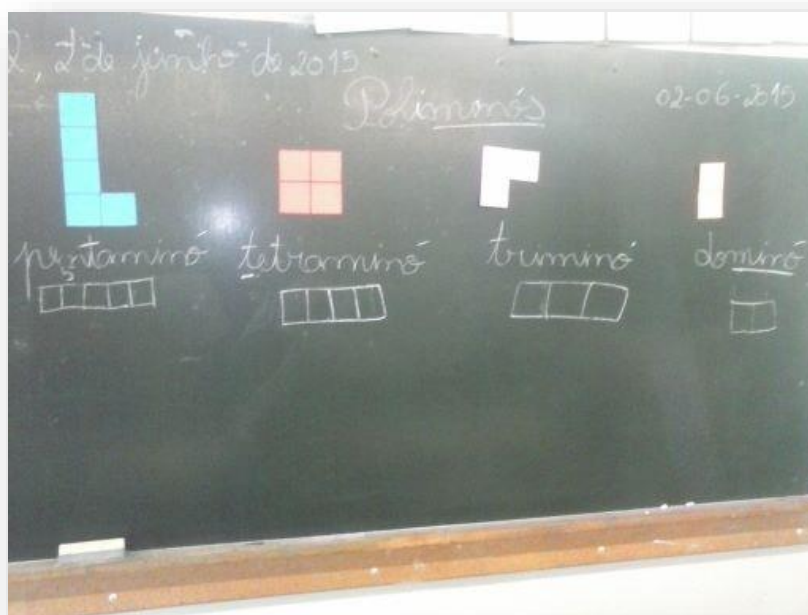 2 de junho de 2015
Poliminós 02-06-2015
pentaminó tetraminó triminó dominó
5